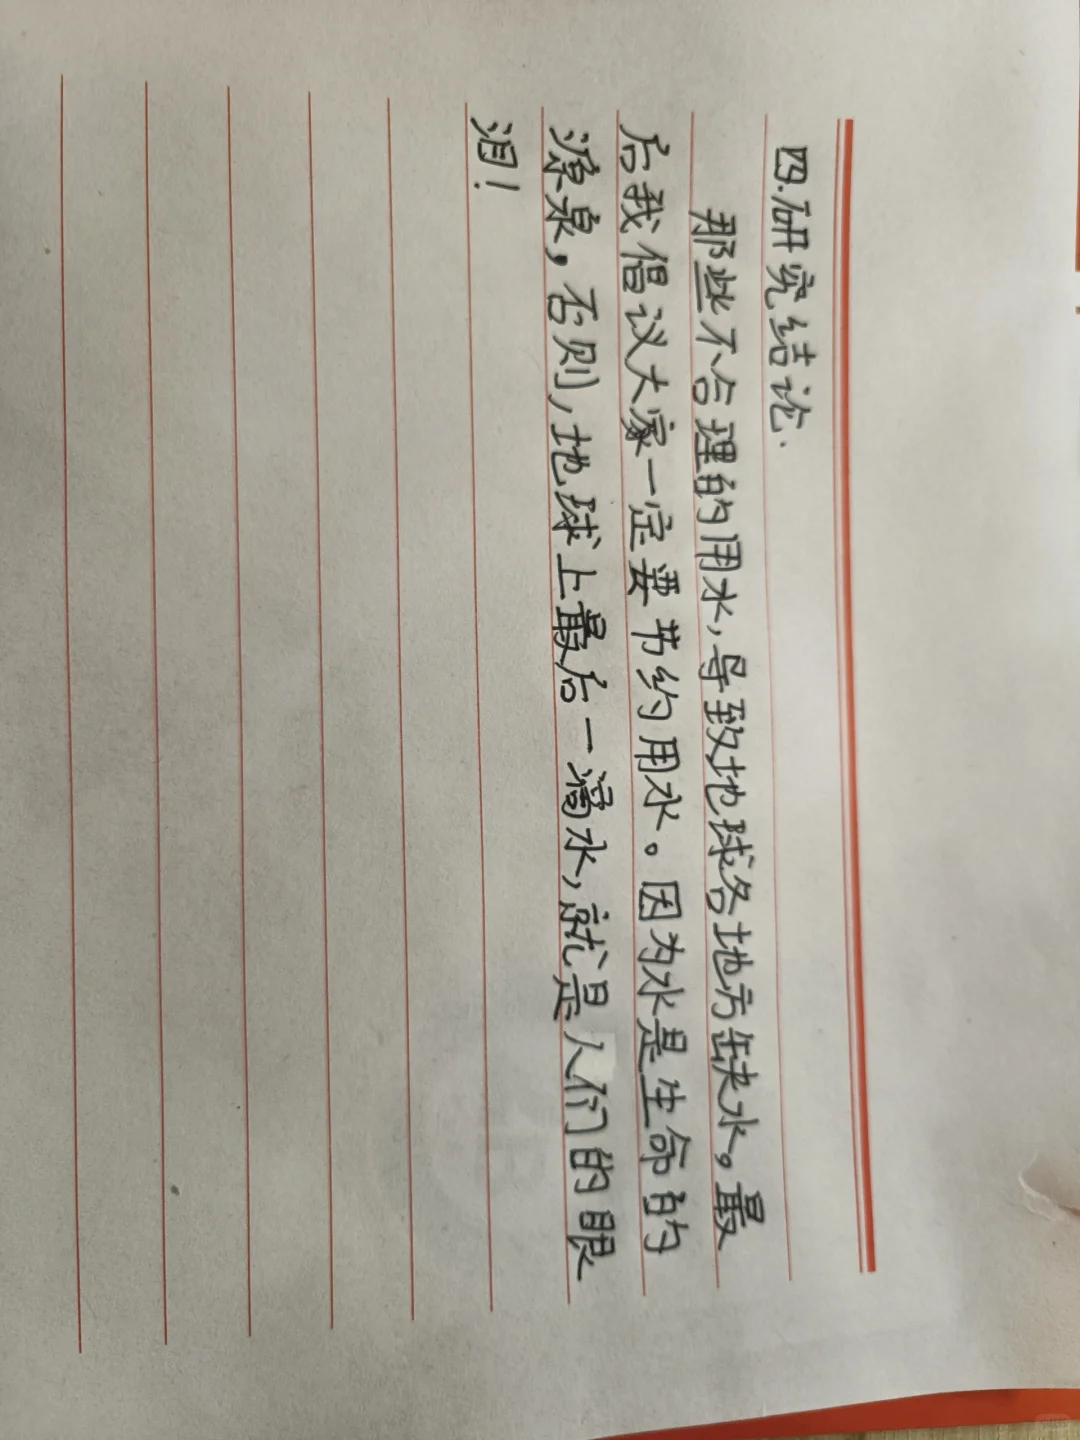 四.研究结论.
那些不合理的用水,导致地球各地方缺水。最
后我倡议大家一定要节约用水。因为水是生命的
源泉,否则,地球上最后一滴水,就是人们的眼
泪!